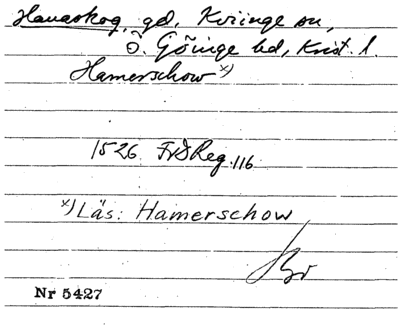 Hanaskog, gd, Kviinge sn,
Ö. Göinge hd, Krist. l.
Hamerschow x)
1526 FrIReg. 116
x) Läs: Hamerschow
Nr 5427